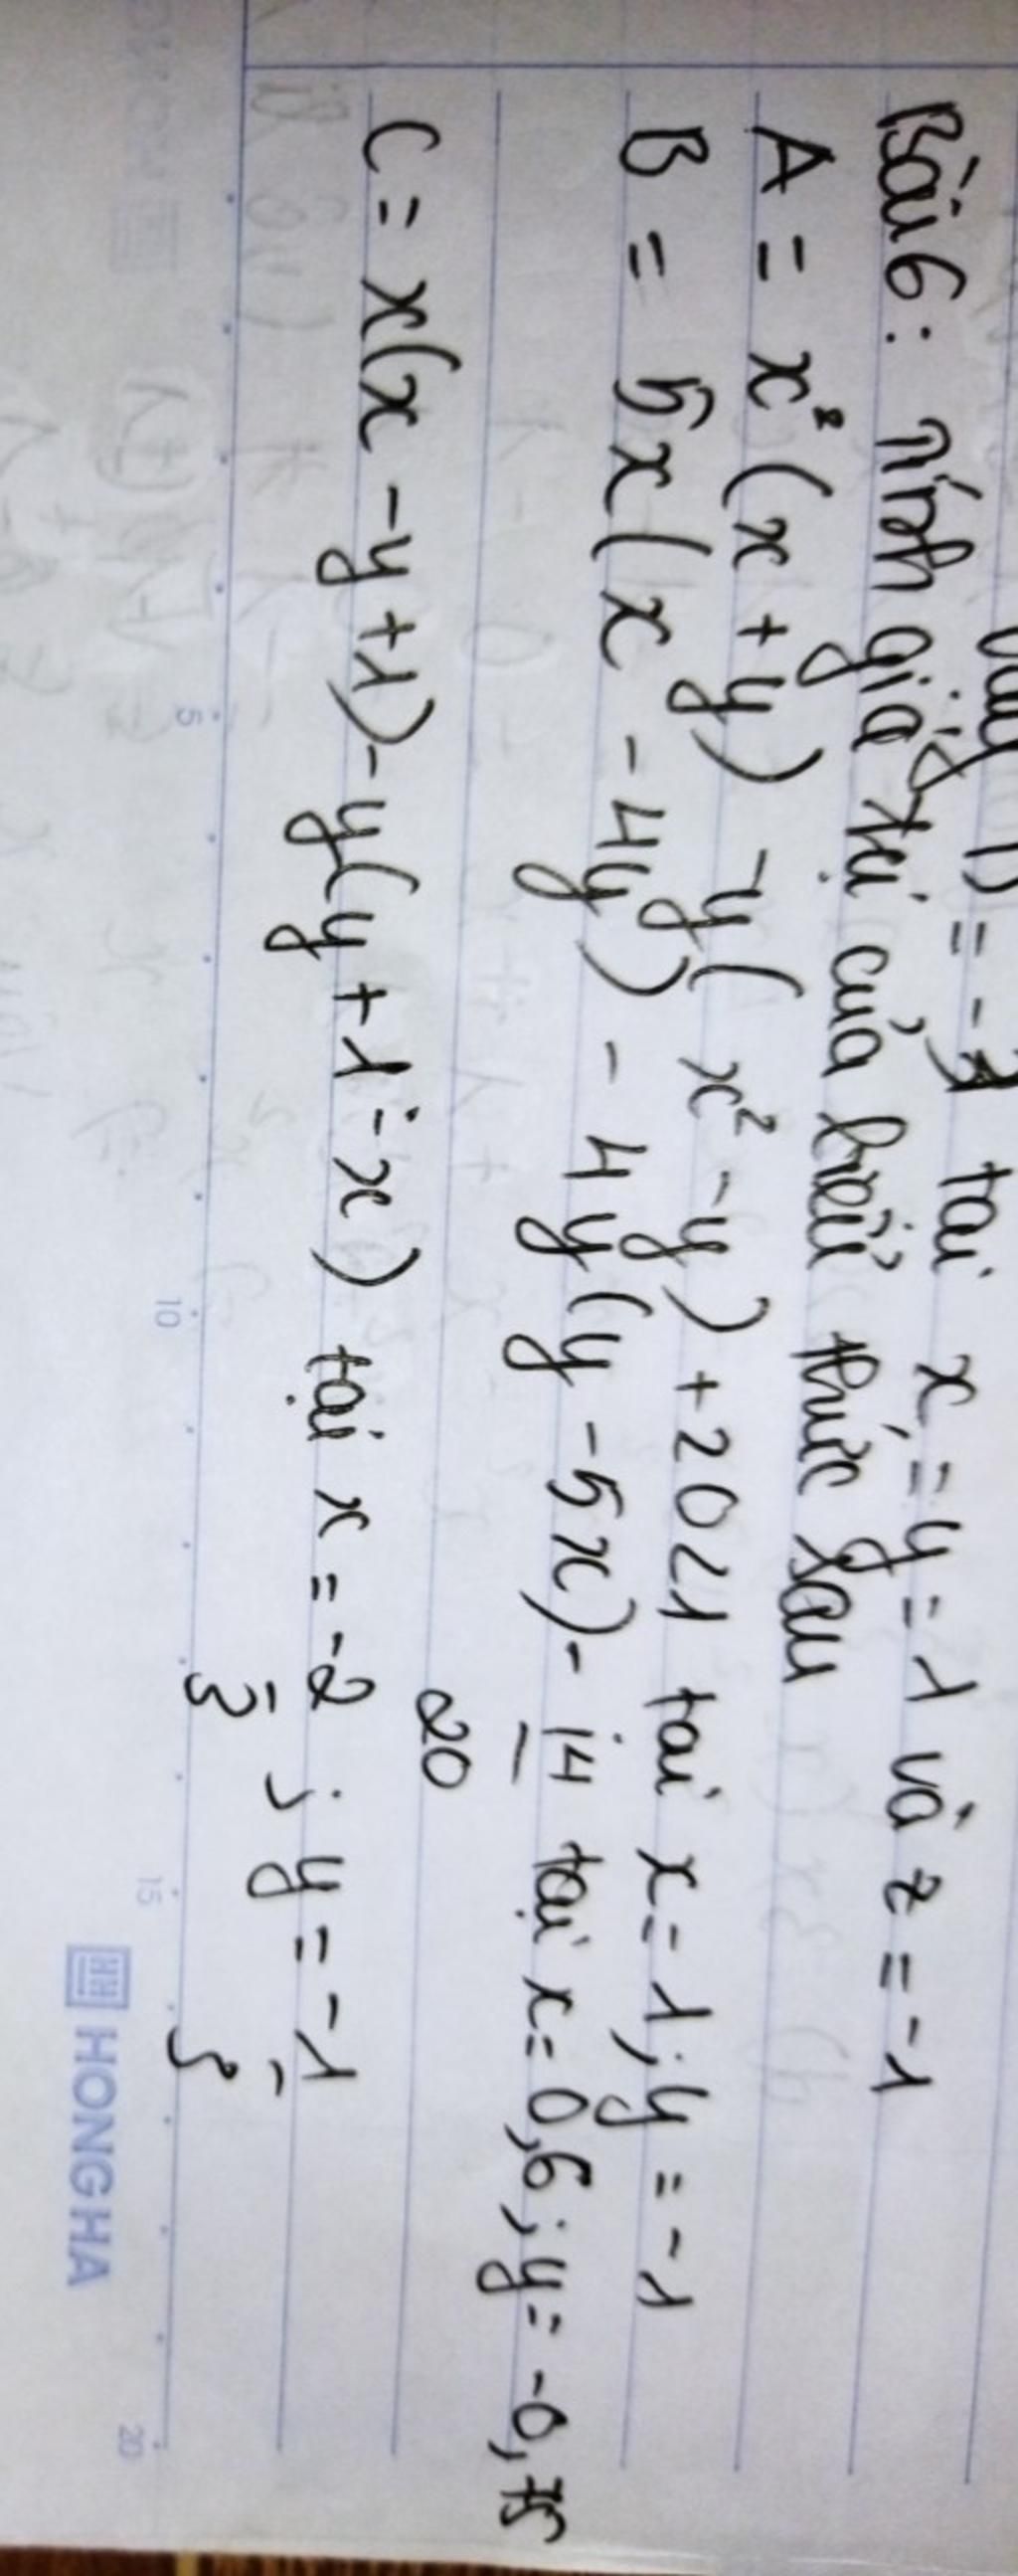 = -3 tại x = y = 1 và z = -1
Bài 6: Tính giá trị của biểu thức sau
A = x² (x + y) - y( x² - y) + 2021 tại x = 1; y = -1
B = 5x(x - 4y) - 4y(y - 5x) - 14/20 tại x = 0,6; y = -0,75
C = x(x - y + 1) - y(y + 1 - x) tại x = -2/3; y = -1/3
5 10 15 20
HONG HA